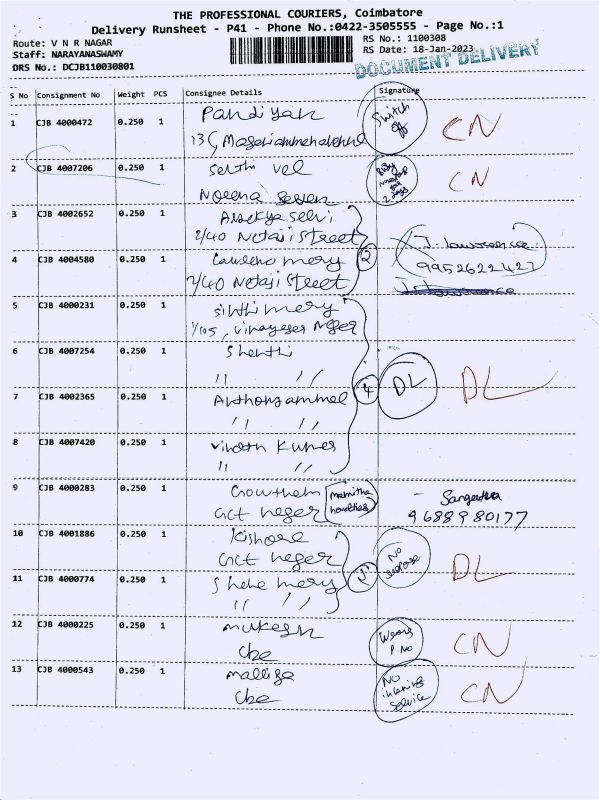 THE PROFESSIONAL COURIERS, Coimbatore
Delivery Runsheet - P41 - Phone No.:0422-3505555 - Page No.:1
Route: V N R NAGAR
Staff: NARAYANASWAMY
DRS No.: DCJB110030801
RS No.: 1100308
RS Date: 18-Jan-2023
DOCUMENT DELIVERY
S No Consignment No Weight PCS Consignee Details Signature
1 CJB 4000472 0.250 1 Pandiyan Switch off CN
13C, Magariammankovil
2 CJB 4007206 0.250 1 Selthi vel CN
Noeena Seven
3 CJB 4002652 0.250 1 Arockya Selvi
2/40 Netaji Street 2 J. Lawrence
9952622427
4 CJB 4004580 0.250 1 mery
2/40 Netaji Street J. Lawrence
5 CJB 4000231 0.250 1 sinthi mery
1/105, vinayager Nger
6 CJB 4007254 0.250 1 Shenthi
,, ,, 4 DL DL
7 CJB 4002365 0.250 1 Anthonyammel
,, ,,
8 CJB 4007420 0.250 1 vinoth Kumer
,, ,,
9 CJB 4000283 0.250 1 Gowthem - Sangeetha
GCT neger 9688980177
10 CJB 4001886 0.250 1 Kishore
GCT neger No response DL
11 CJB 4000774 0.250 1 Shehe mery
,, ,,
12 CJB 4000225 0.250 1 mukesh Wrong P No CN
Cbe
13 CJB 4000543 0.250 1 mallige No incoming service CN
Cbe